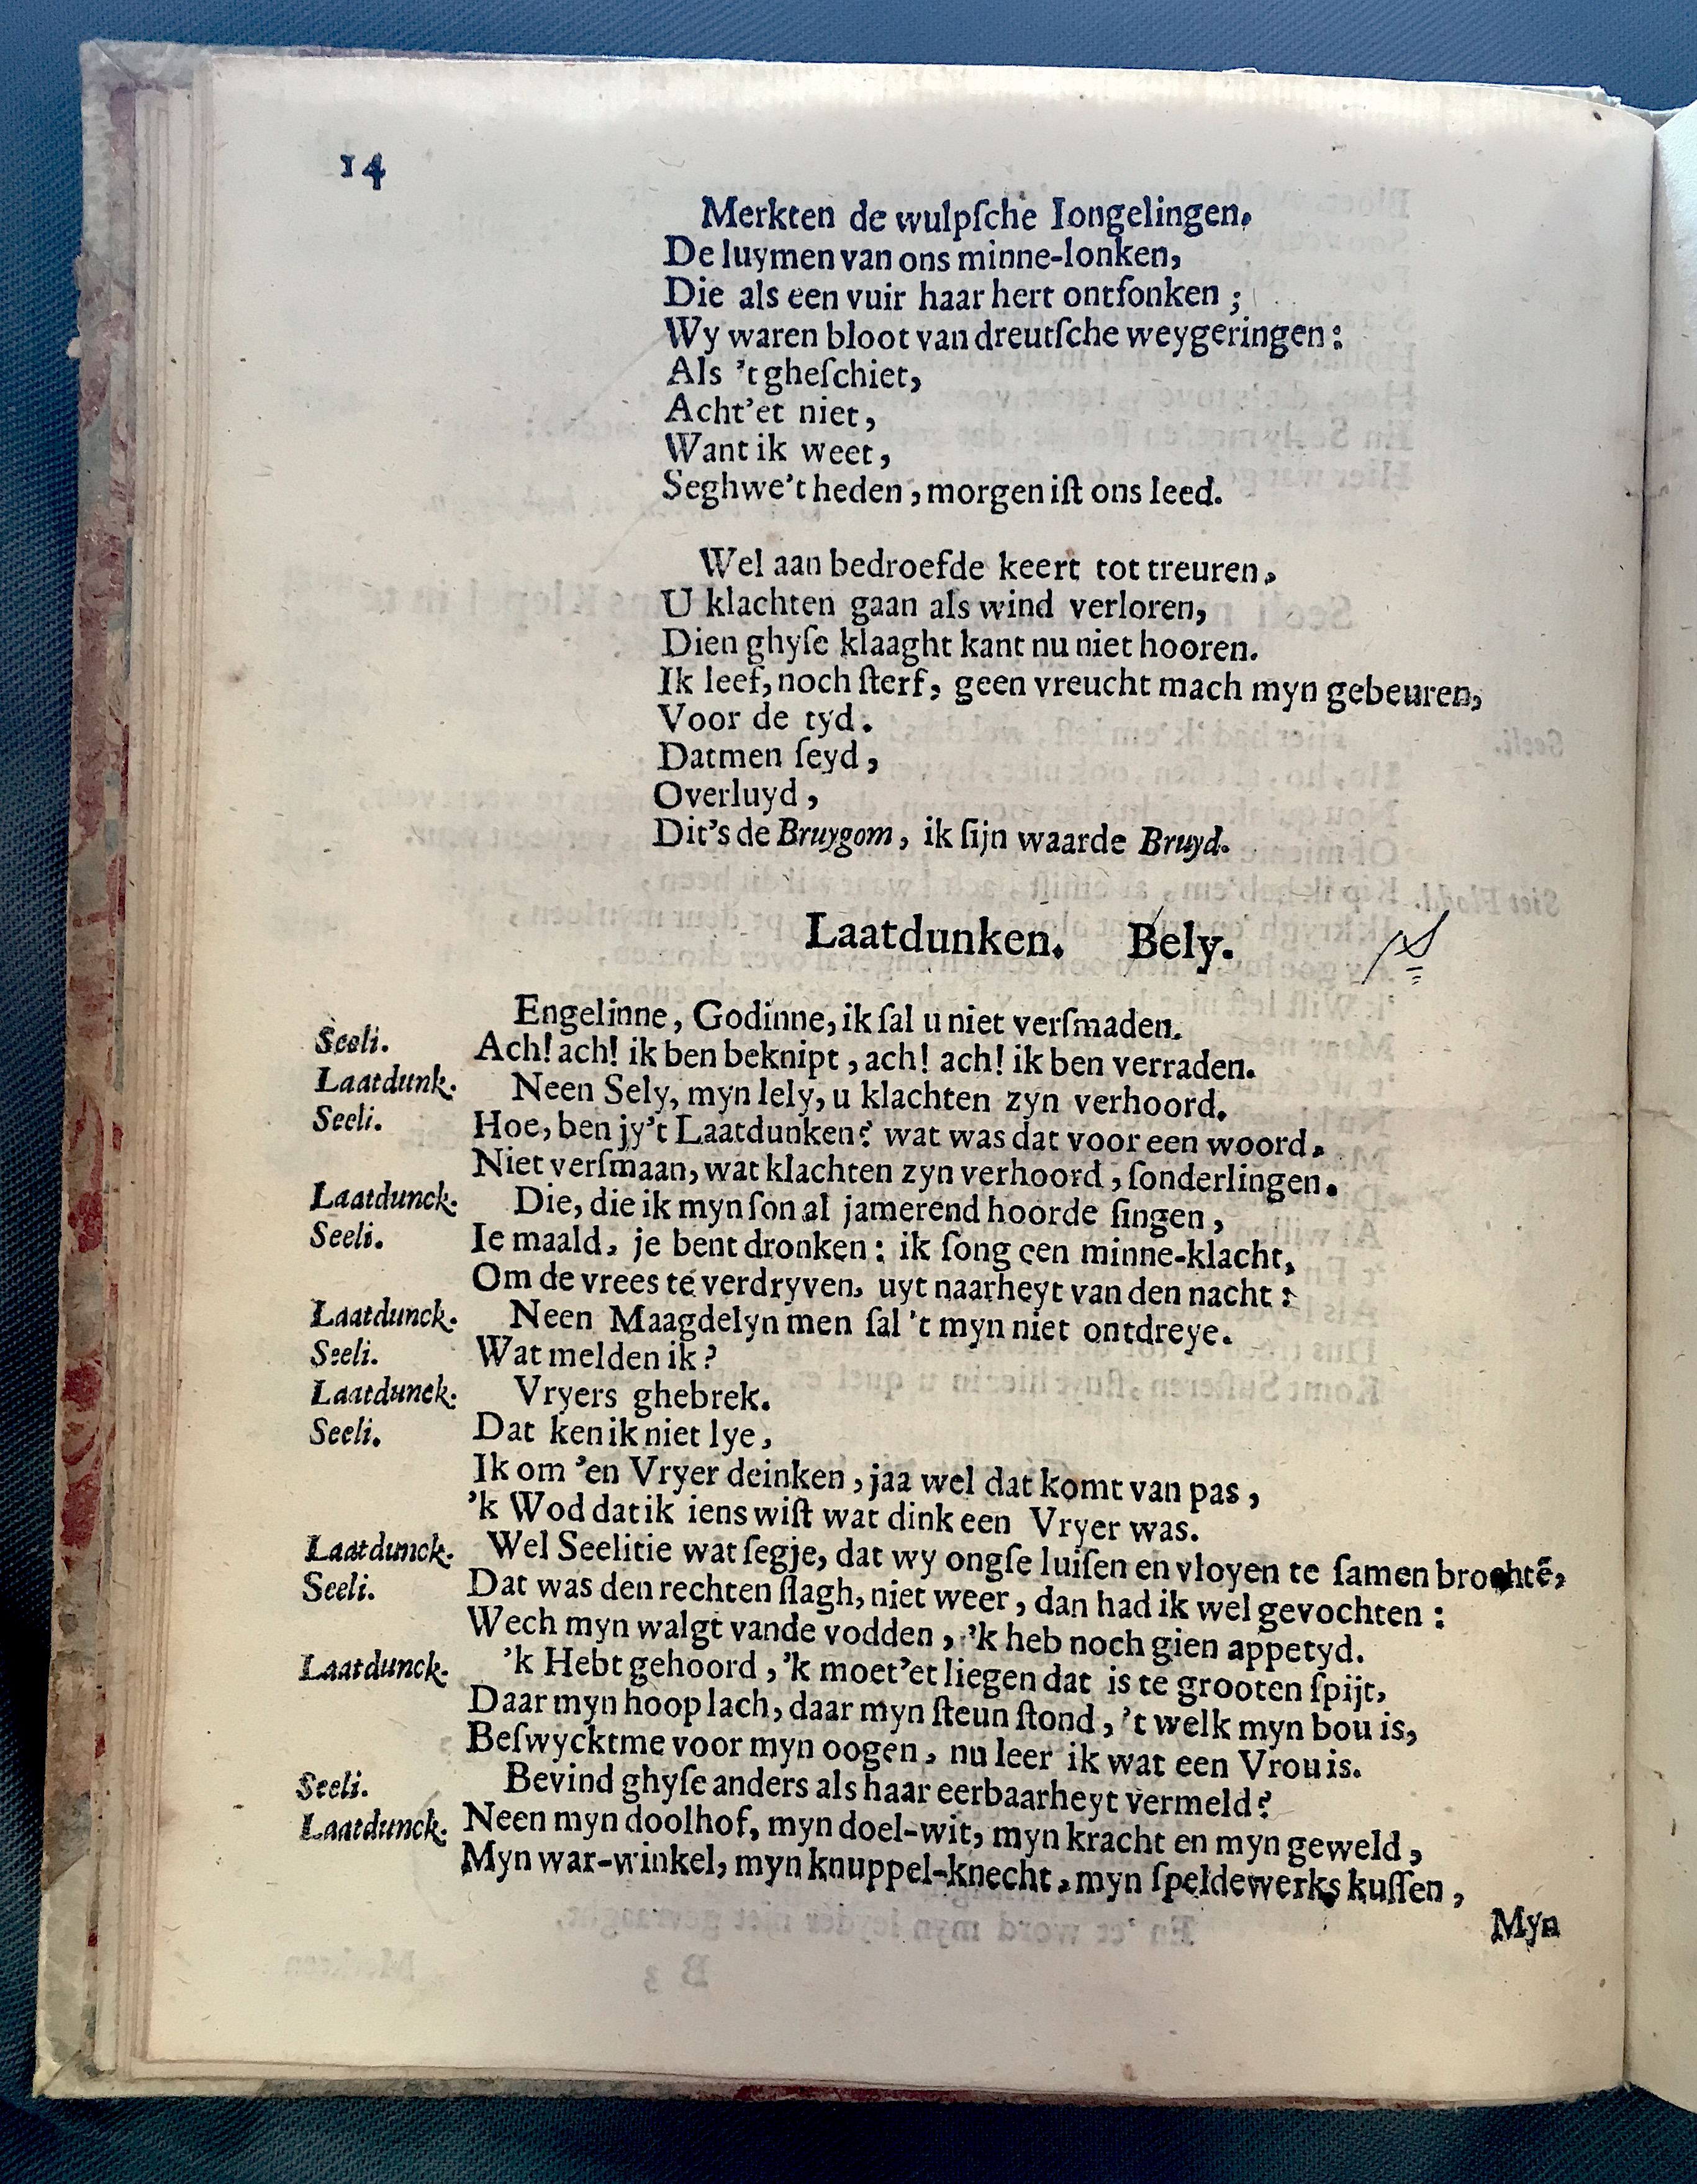 14
Merkten de wulpſche Iongelingen.
De luymen van ons minne-lonken,
Die als een vuir haar hert ontfonken ;
Wy waren bloot van dreutſche weygeringen:
Als 't gheſchiet,
Acht'et niet,
Want ik weet,
Seghwe't heden, morgen iſt ons leed.
Wel aan bedroefde keert tot treuren,
U klachten gaan als wind verloren,
Dien ghyſe klaaght kant nu niet hooren.
Ik leef, noch ſterf, geen vreucht mach myn gebeuren,
Voor de tyd.
Datmen ſeyd,
Overluyd,
Dit's de Bruygom, ik ſijn waarde Bruyd.
Laatdunken. Bely.
Engelinne, Godinne, ik ſal u niet verſmaden.
Seeli. Ach! ach! ik ben beknipt, ach! ach! ik ben verraden.
Laatdunk. Neen Sely, myn lely, u klachten zyn verhoord.
Seeli. Hoe, ben jy't Laatdunken? wat was dat voor een woord.
Niet verſmaan, wat klachten zyn verhoord, ſonderlingen.
Laatdunck. Die, die ik myn ſon al jamerend hoorde ſingen,
Seeli. Ie maald, je bent dronken: ik ſong een minne-klacht,
Om de vrees te verdryven, uyt naarheyt van den nacht:
Laatdunck. Neen Maagdelyn men ſal 't myn niet ontdreye.
Seeli. Wat melden ik?
Laatdunck. Vryers ghebrek.
Seeli. Dat ken ik niet lye,
Ik om 'en Vryer deinken, jaa wel dat komt van pas,
'k Wod dat ik iens wiſt wat dink een Vryer was.
Laatdunck. Wel Seelitie wat ſegje, dat wy ongſe luiſen en vloyen te ſamen brochtē,
Seeli. Dat was den rechten ſlagh, niet weer, dan had ik wel gevochten:
Wech myn walgt vande vodden, 'k heb noch gien appetyd.
Laatdunck. 'k Hebt gehoord, 'k moet'et liegen dat is te grooten ſpijt,
Daar myn hoop lach, daar myn ſteun ſtond, 't welk myn bou is,
Beſwycktme voor myn oogen, nu leer ik wat een Vrou is.
Seeli. Bevind ghyſe anders als haar eerbaarheyt vermeld?
Laatdunck. Neen myn doolhof, myn doel-wit, myn kracht en myn geweld,
Myn war-winkel, myn knuppel-knecht, myn ſpeldewerks kuſſen,
Myn